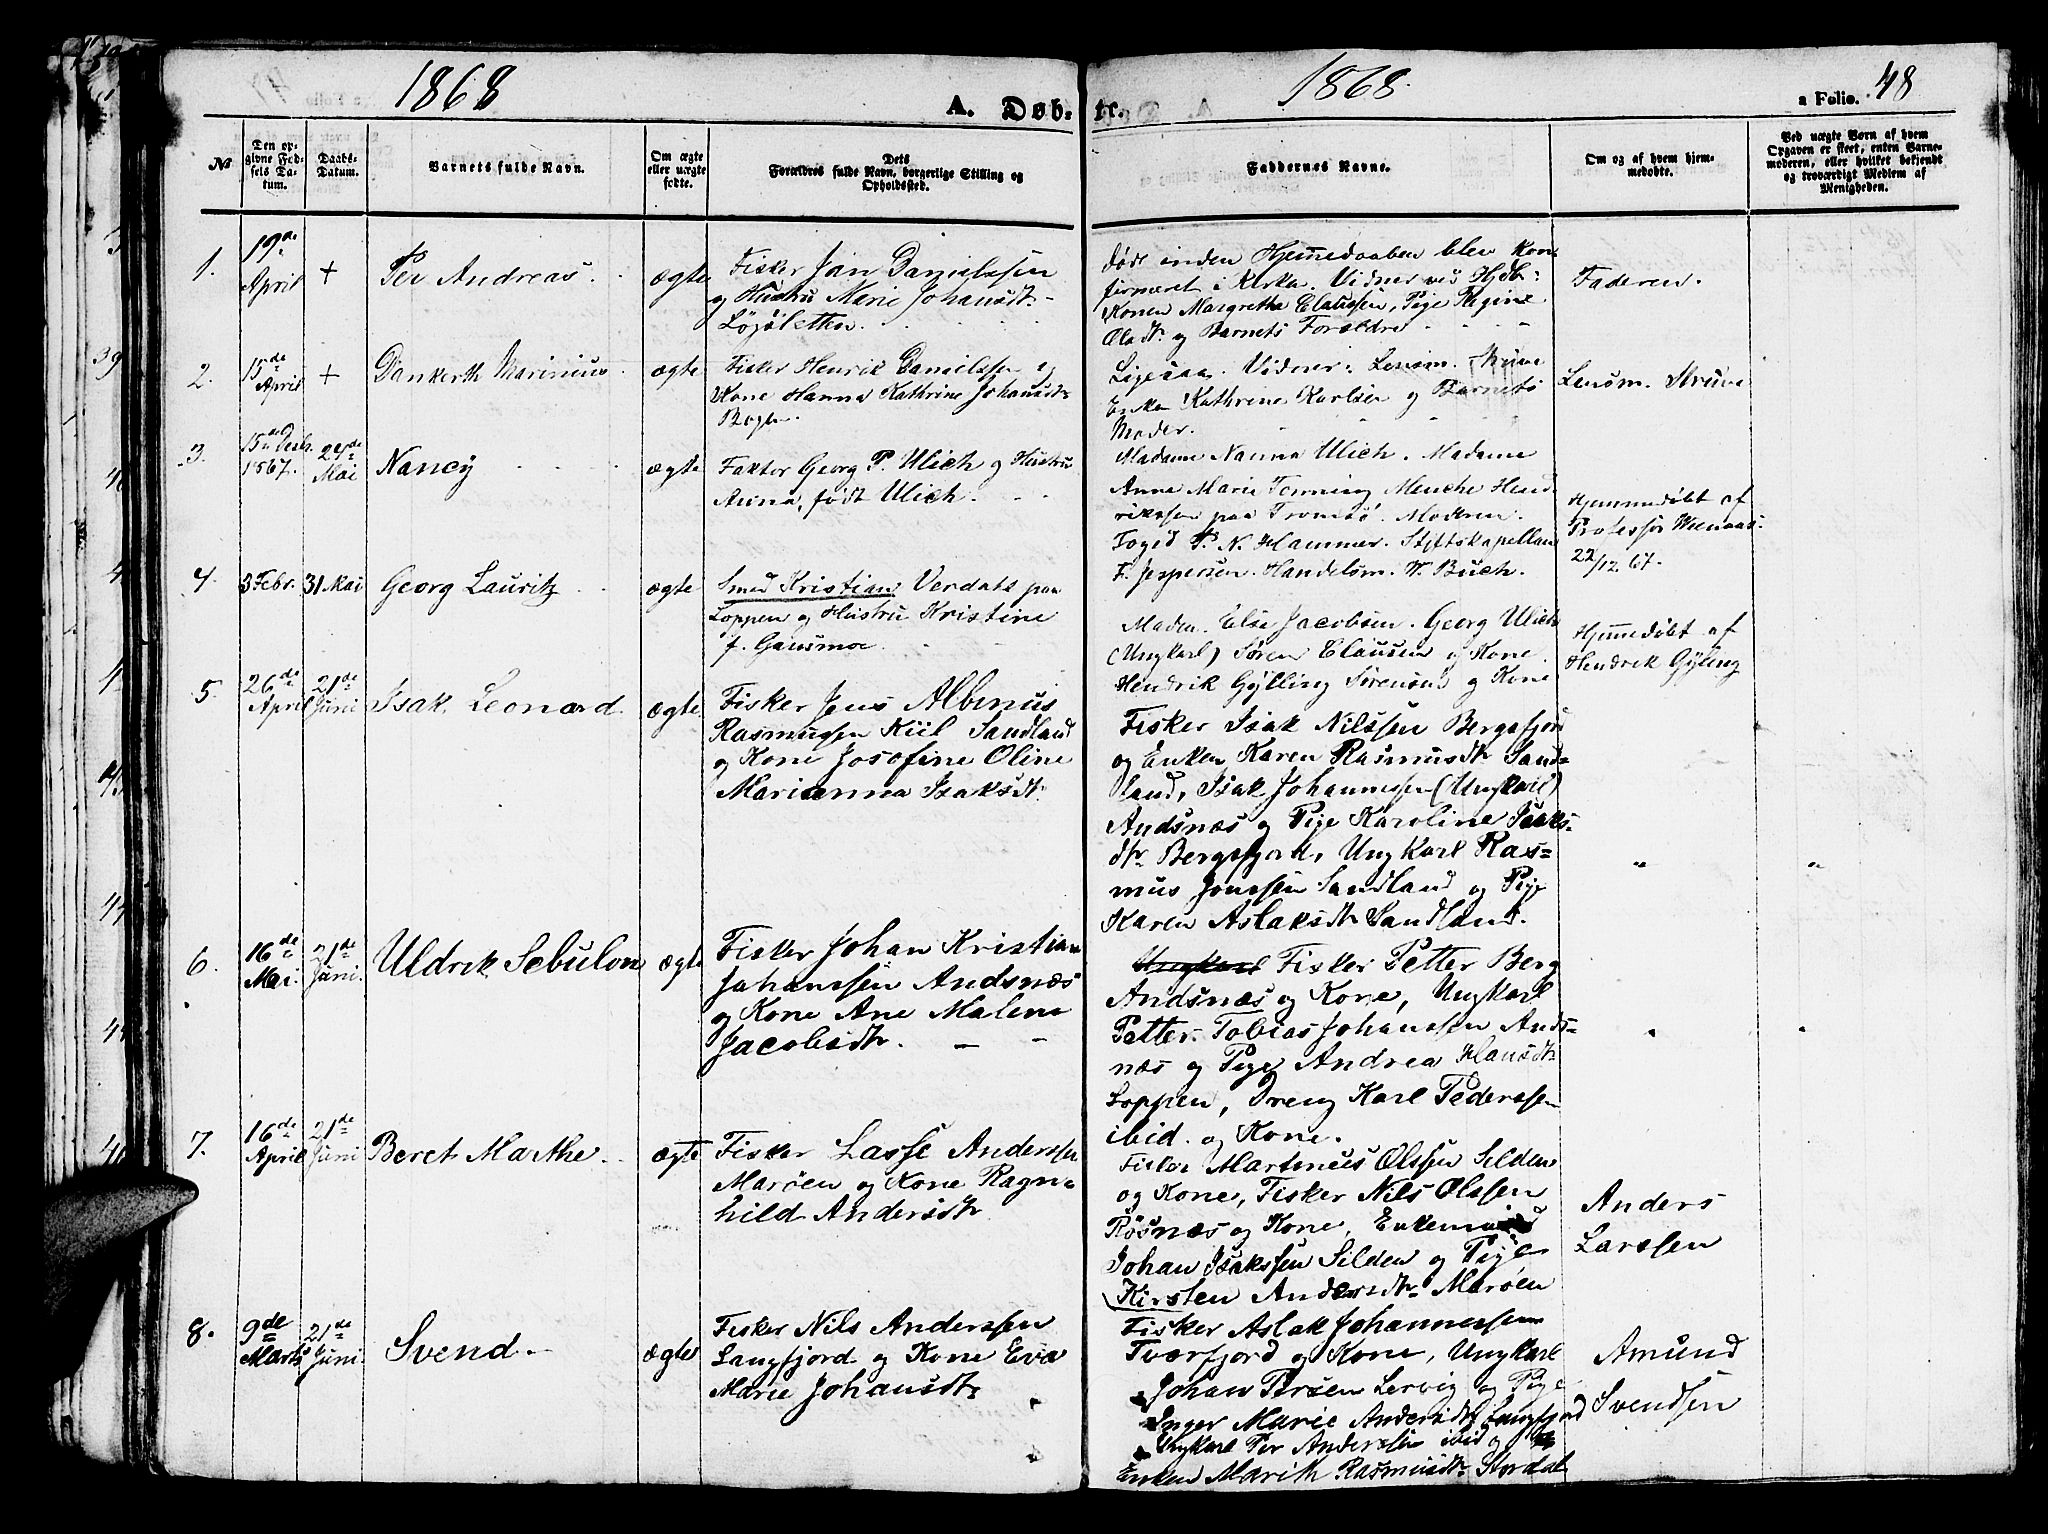 1868
A. Døb-
1868.
te.
a Folio. 48
No
Den opgivne Fødsels Datum.
Daabs-Datum.
Barnets fulde Navn.
Om ægte eller uægte fødte.
Dets Forældres fulde Navn, borgerlige Stilling og Opholdssted.
Faddernes Navne.
Om og af hvem hjemmedøbte.
Ved uægte Børn af hvem Opgaven er skeet, enten Barnemoderen, eller hvilket bekjendt og troværdigt Medlem af Menigheden.
1.
19de
April
+
Per Andreas.
ægte
Fisker Jan Danielssen
og Hustru Merie Johansdtr
Løgsletten.
døde inden Hjemmedaaben blev kon
firmeret i Kirken. Vidner ved Hjdb:
Konen Margrethe Claussen, Pige Regine
Olsdtr og Barnets Forældre
Faderen.
2.
15de
April
+
Dankerth Marinius.
ægte
Fisker Henrik Danielssen og
Kone Hanna Kathrine Johansdtr
Bogen.
Ligesaa. Vidner: Lensm. Struve
Enken Kathrine Karlsen og Barnets
Moder.
Lensm. Struve
3.
15de Decbr.
1867.
24de
Mai
Nancy
ægte
Faktor Georg P. Ulich og Hustru
Anna, født Ulich.
Madame Nanna Ulich. Madame
Anne Marie Fenning Menche Hend
rikssen paa Tromsø. Moderen.
Foged P. N. Hammer. Stiftskapellan
F. Jespersen. Handelsm. W. Buch.
Hjemmedøbt af
Professor
22/12 67.
4.
3 Febr.
31. Mai
Georg Lauritz
ægte
Smed Kristian Verdals paa
Loppen og Hustru Kristine
f. Gausmoe.
Moden. Else Jacobsen. Georg Ulich
(Ungkarl) Søren Clausen og Kone.
Hendrik Gylling Sørensen og Kone
Hjemedøbt af
Hendrik Gyling
5.
26de
April
21de
Juni
Isak Leonard.
ægte
Fisker Jens Albinus
Rasmussen Kiil Sandland
og Kone Josofine Oline
Marianna Isaksdtr.
Fisker Isak Nilssen Bergsfjord
og Enken Karen Rasmusdtr Sand-
land, Isak Johannessen (Ungkarl)
Andsnæs og Pige Karoline Isaks-
dtr Bergsfjord, Ungkarl Ras=
mus Jonssen Sandland og Pige
Karen Aslaksdtr Sandland.
"
"
6.
16de
Mai.
21de
Juni.
Uldrik Sebulon
ægte
Fisker Johan Kristian
Johanssen Andsnæs
og Kone Ane Malene
Jacobsdtr.
Ungkarl Fisker Petter Berg
Andsnæs og Kone, Ungkarl
Petter Tobias Johanssen Ands-
næs og Pige Andrea Hansdtr
Loppen, Dreng Karl Pederssen
ibid. og Kone.
"
"
7.
16de
April
21de
Juni
Beret Marthe.
ægte
Fisker Lasse Anderssen
Marøen og Kone Ragn=
hild Andersdtr
Fisker Martinus Olssen Silden
og Kone, Fisker Nils Olssen
Røsnæs og Kone, Enkemand
Johan Isakssen Silden og Pige
Kirsten Andersdtr Marøen
Anders
Larssen
8.
9de
Marts
21de
Juni.
Svend.
ægte
Fisker Nils Anderssen
Langfjord og Kone Eva
Marie Johansdtr
Fisker Aslak Johannessen
Tverfjord og Kone, Ungkarl
Johan Persen Lervig og Pige
Inger Marie Andersdtr Langfjord
Ungkarl Per Anderssen ibid og
Enken Marith Rasmusdtr Stordal
Amund
Svendsen